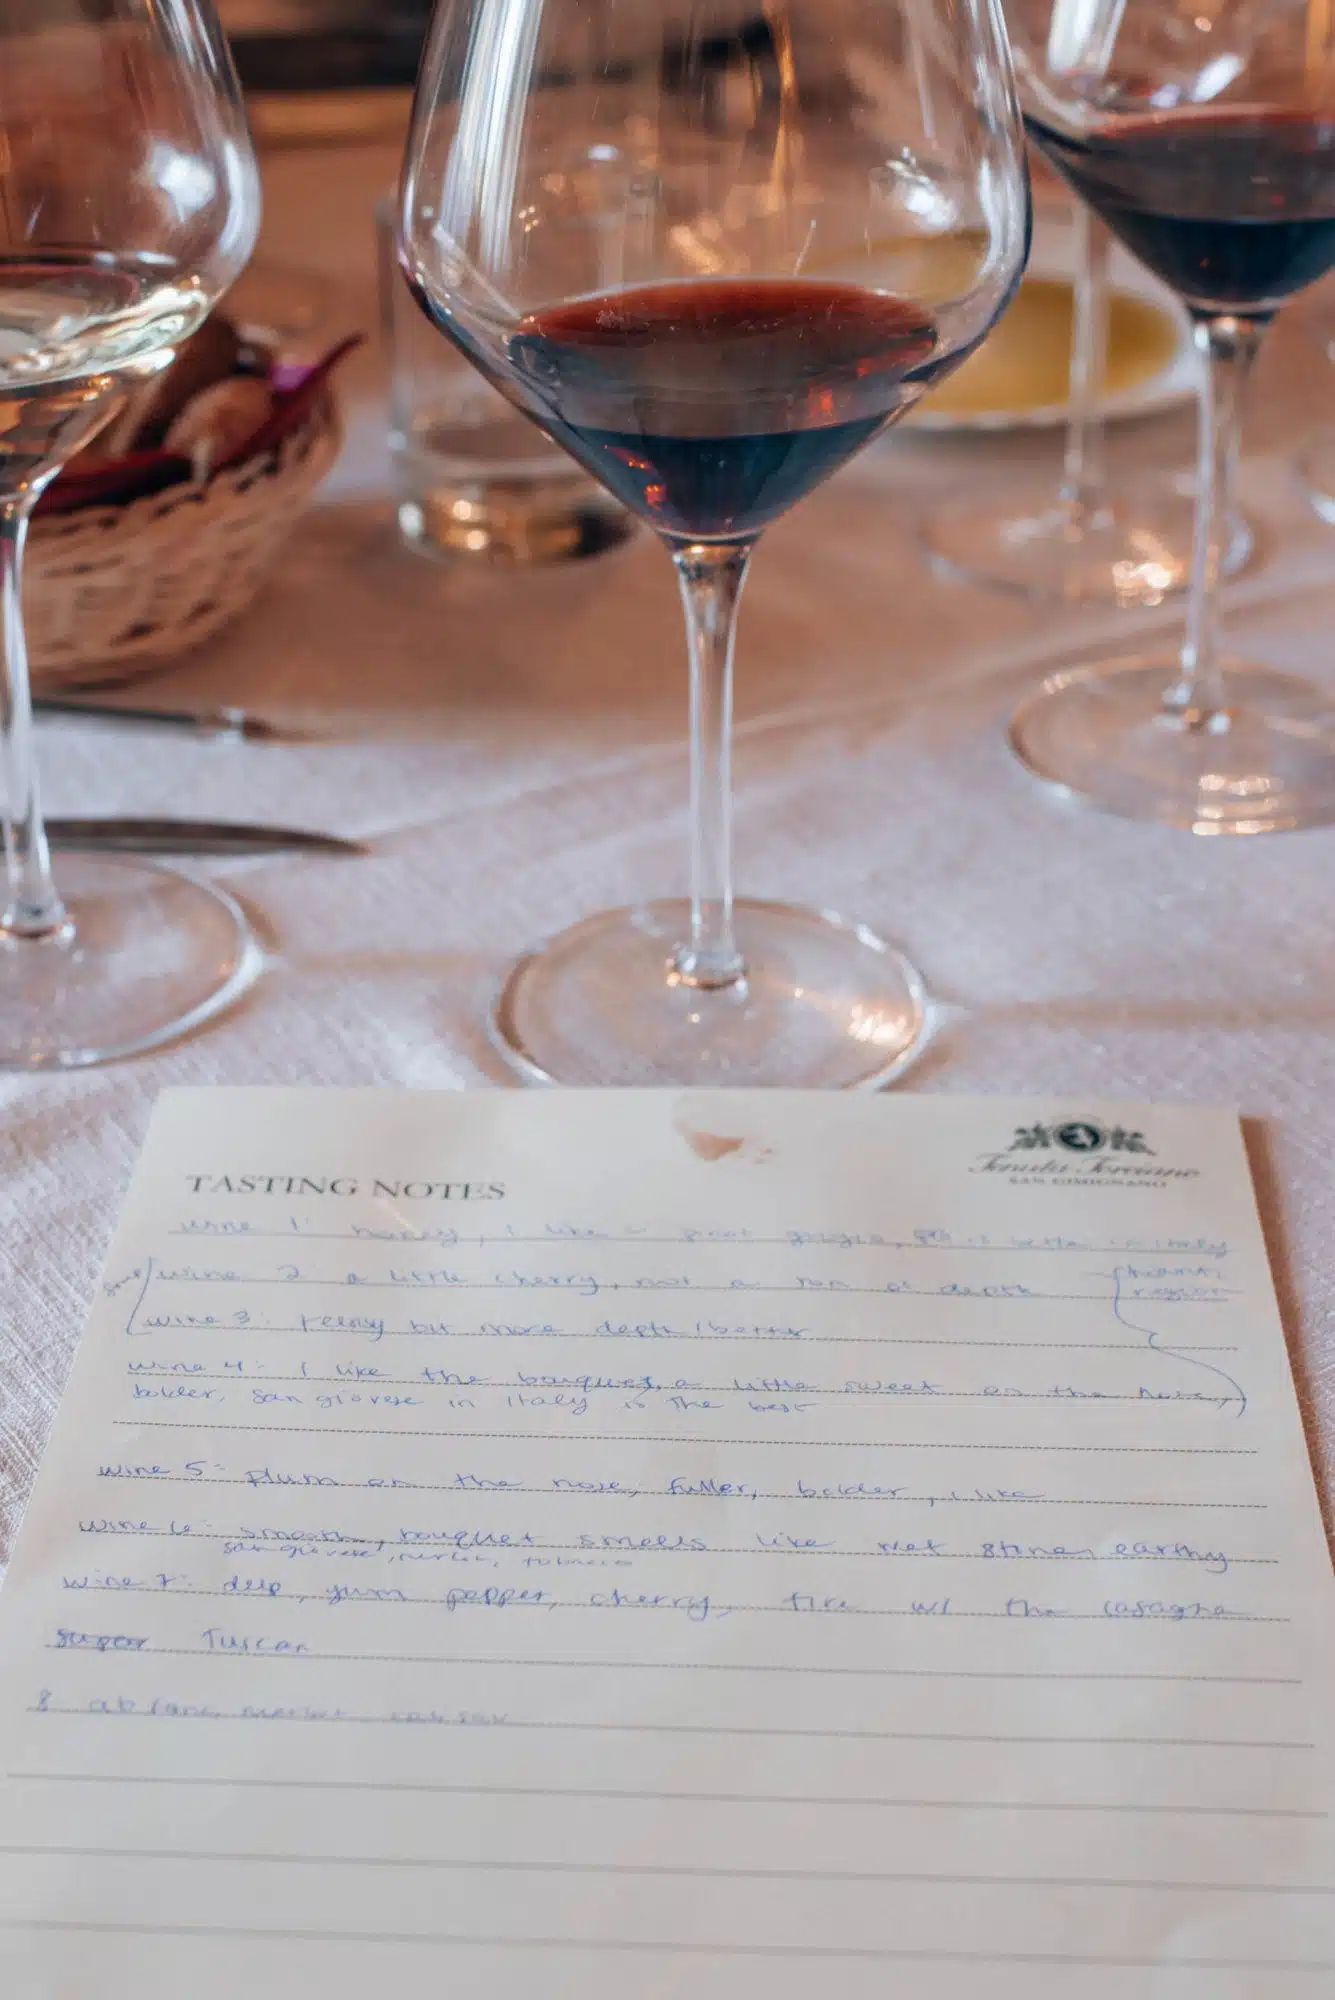 TASTING NOTES
Tenuta Torciano
SAN GIMIGNANO
wine 1: honey, I like pinot grigio, better in Italy
wine 2 a little cherry, not a ton of depth
chianti region
wine 3: bit more depth / better
wine 4: I like the bouquet, a little sweet on the nose,
bolder, san giovese in Italy is the best
wine 5: plum on the nose, fuller, bolder, I like
wine 6: smooth, bouquet smells like wet stone, earthy
san giovese, merlot,
wine 7: deep, yum pepper, cherry, fire w/ the lasagna
super Tuscan
8 merlot cab sav